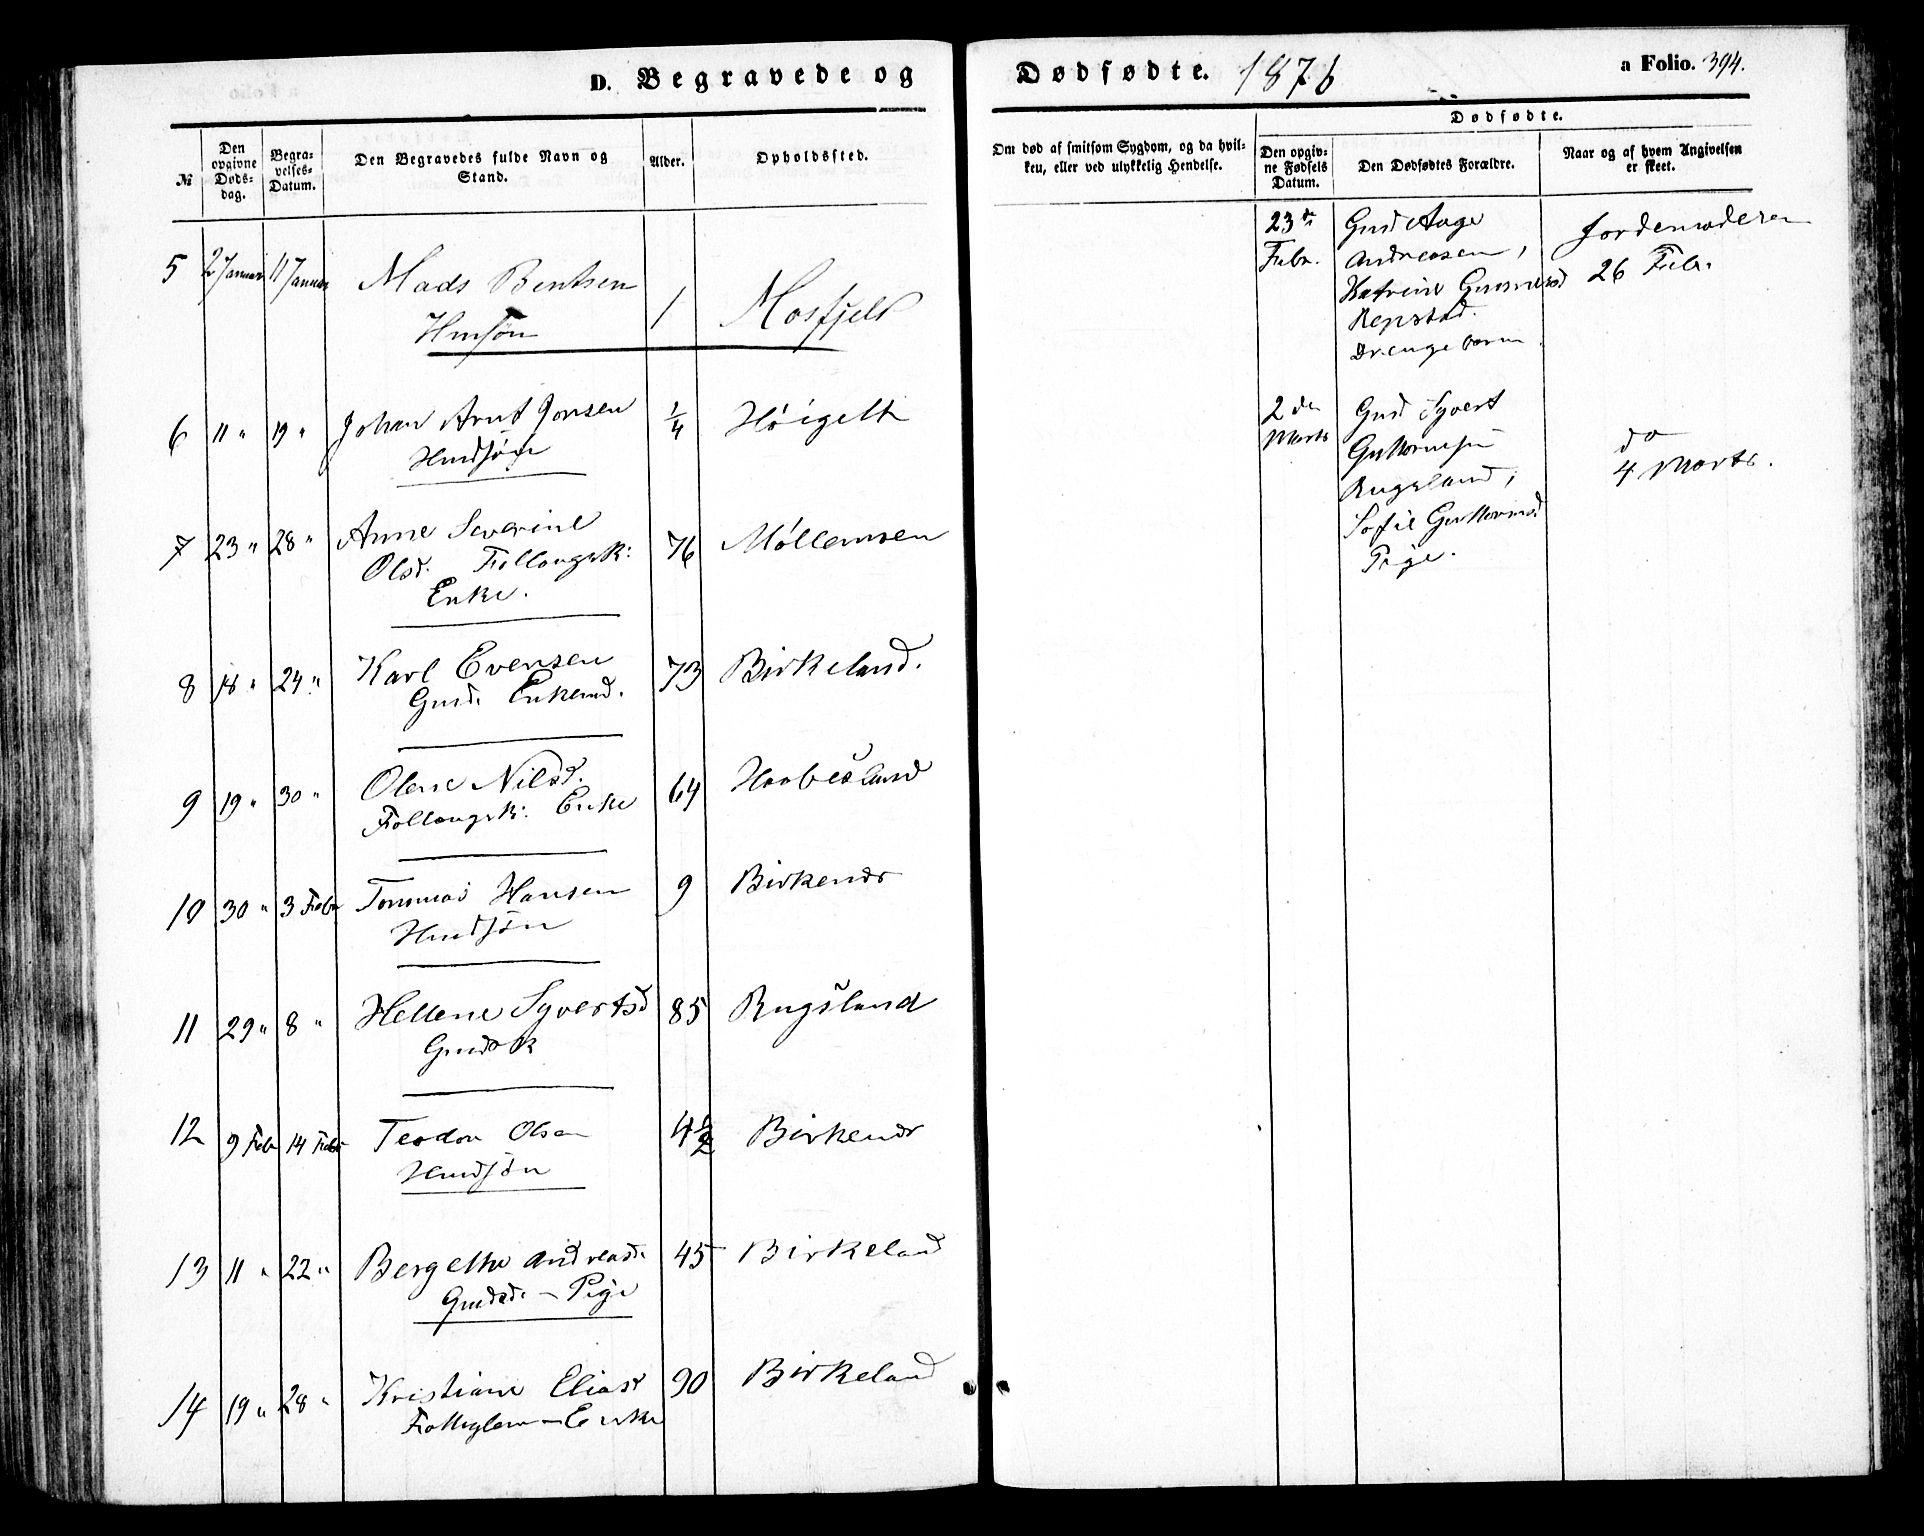 D. Begravede og
Dødfødte. 1876
a Folio. 394.
№
Den opgivne Døds-dag.
Begra-velses-Datum.
Den Begravedes fulde Navn og Stand.
Alder.
Opholdssted.
Om død af smitsom Sygdom, og da hvil-
ken, eller ved ulykkelig Hendelse.
Dødfødte.
Den opgiv-ne Fødsels Datum.
Den Dødfødtes Forældre.
Naar og af hvem Angivelsen er skeet.
5 2 Januar 11 Januar Mads Bentsen 1 Mosfjeld
Hmsøn
6 11 " 19 " Johan Arnt Jonsen 1/4 Høigelt
Hmdsøn
7 23 " 28 " Anne Severine 76 Møllemoen
Olsd. Follougsk:
Enke.
8 18 " 24 " Karl Evensen 73 Birkeland.
Gmd. Enkemd.
9 19 " 30 " Olene Nilsd. 64 Haabesland
Follougsk: Enke
10 30 " 3 Febr Tommas Hansen 9 Birkenes
Hmdsøn
11 29 " 8 " Hellene Syvertsd 85 Rugsland
Gmdsk
12 9 Febr 14 Febr Teodor Olsen 4 1/2 Birkenes
Hmdsøn
13 11 " 22 " Bergethe Andreasd. 45 Birkeland
Gmdsd. - Pige
14 19 " 28 " Kristiane Eliasd 90 Birkeland
Enke
23de Febr.
Gmd Aage
Andreasen,
Katrine Gunnersd
Repstad.
Drengebarn
Jordemoderen
26 Febr.
2den Marts
Gmd Syvert
Guttormsen
Rugsland,
Sofie Guttormsd
Pige.
do
4 Marts.